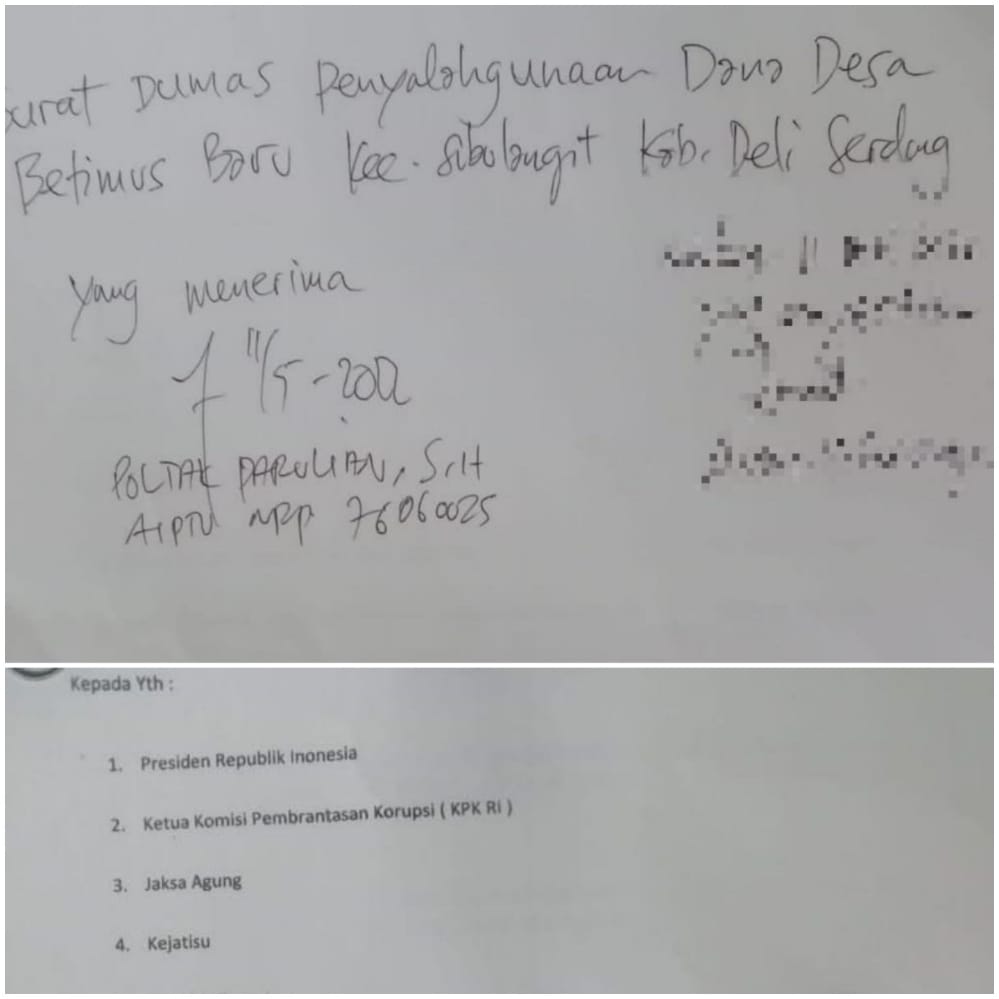 surat Dumas Penyalahgunaan Dana Desa
Betimus Baru Kec. Sibolangit Kab. Deli Serdang
Yang menerima
11/5-2022
POLTAK PARULIAN, S.H
AIPTU NRP 76060025
Kepada Yth :
1. Presiden Republik Inonesia
2. Ketua Komisi Pembrantasan Korupsi ( KPK RI )
3. Jaksa Agung
4. Kejatisu